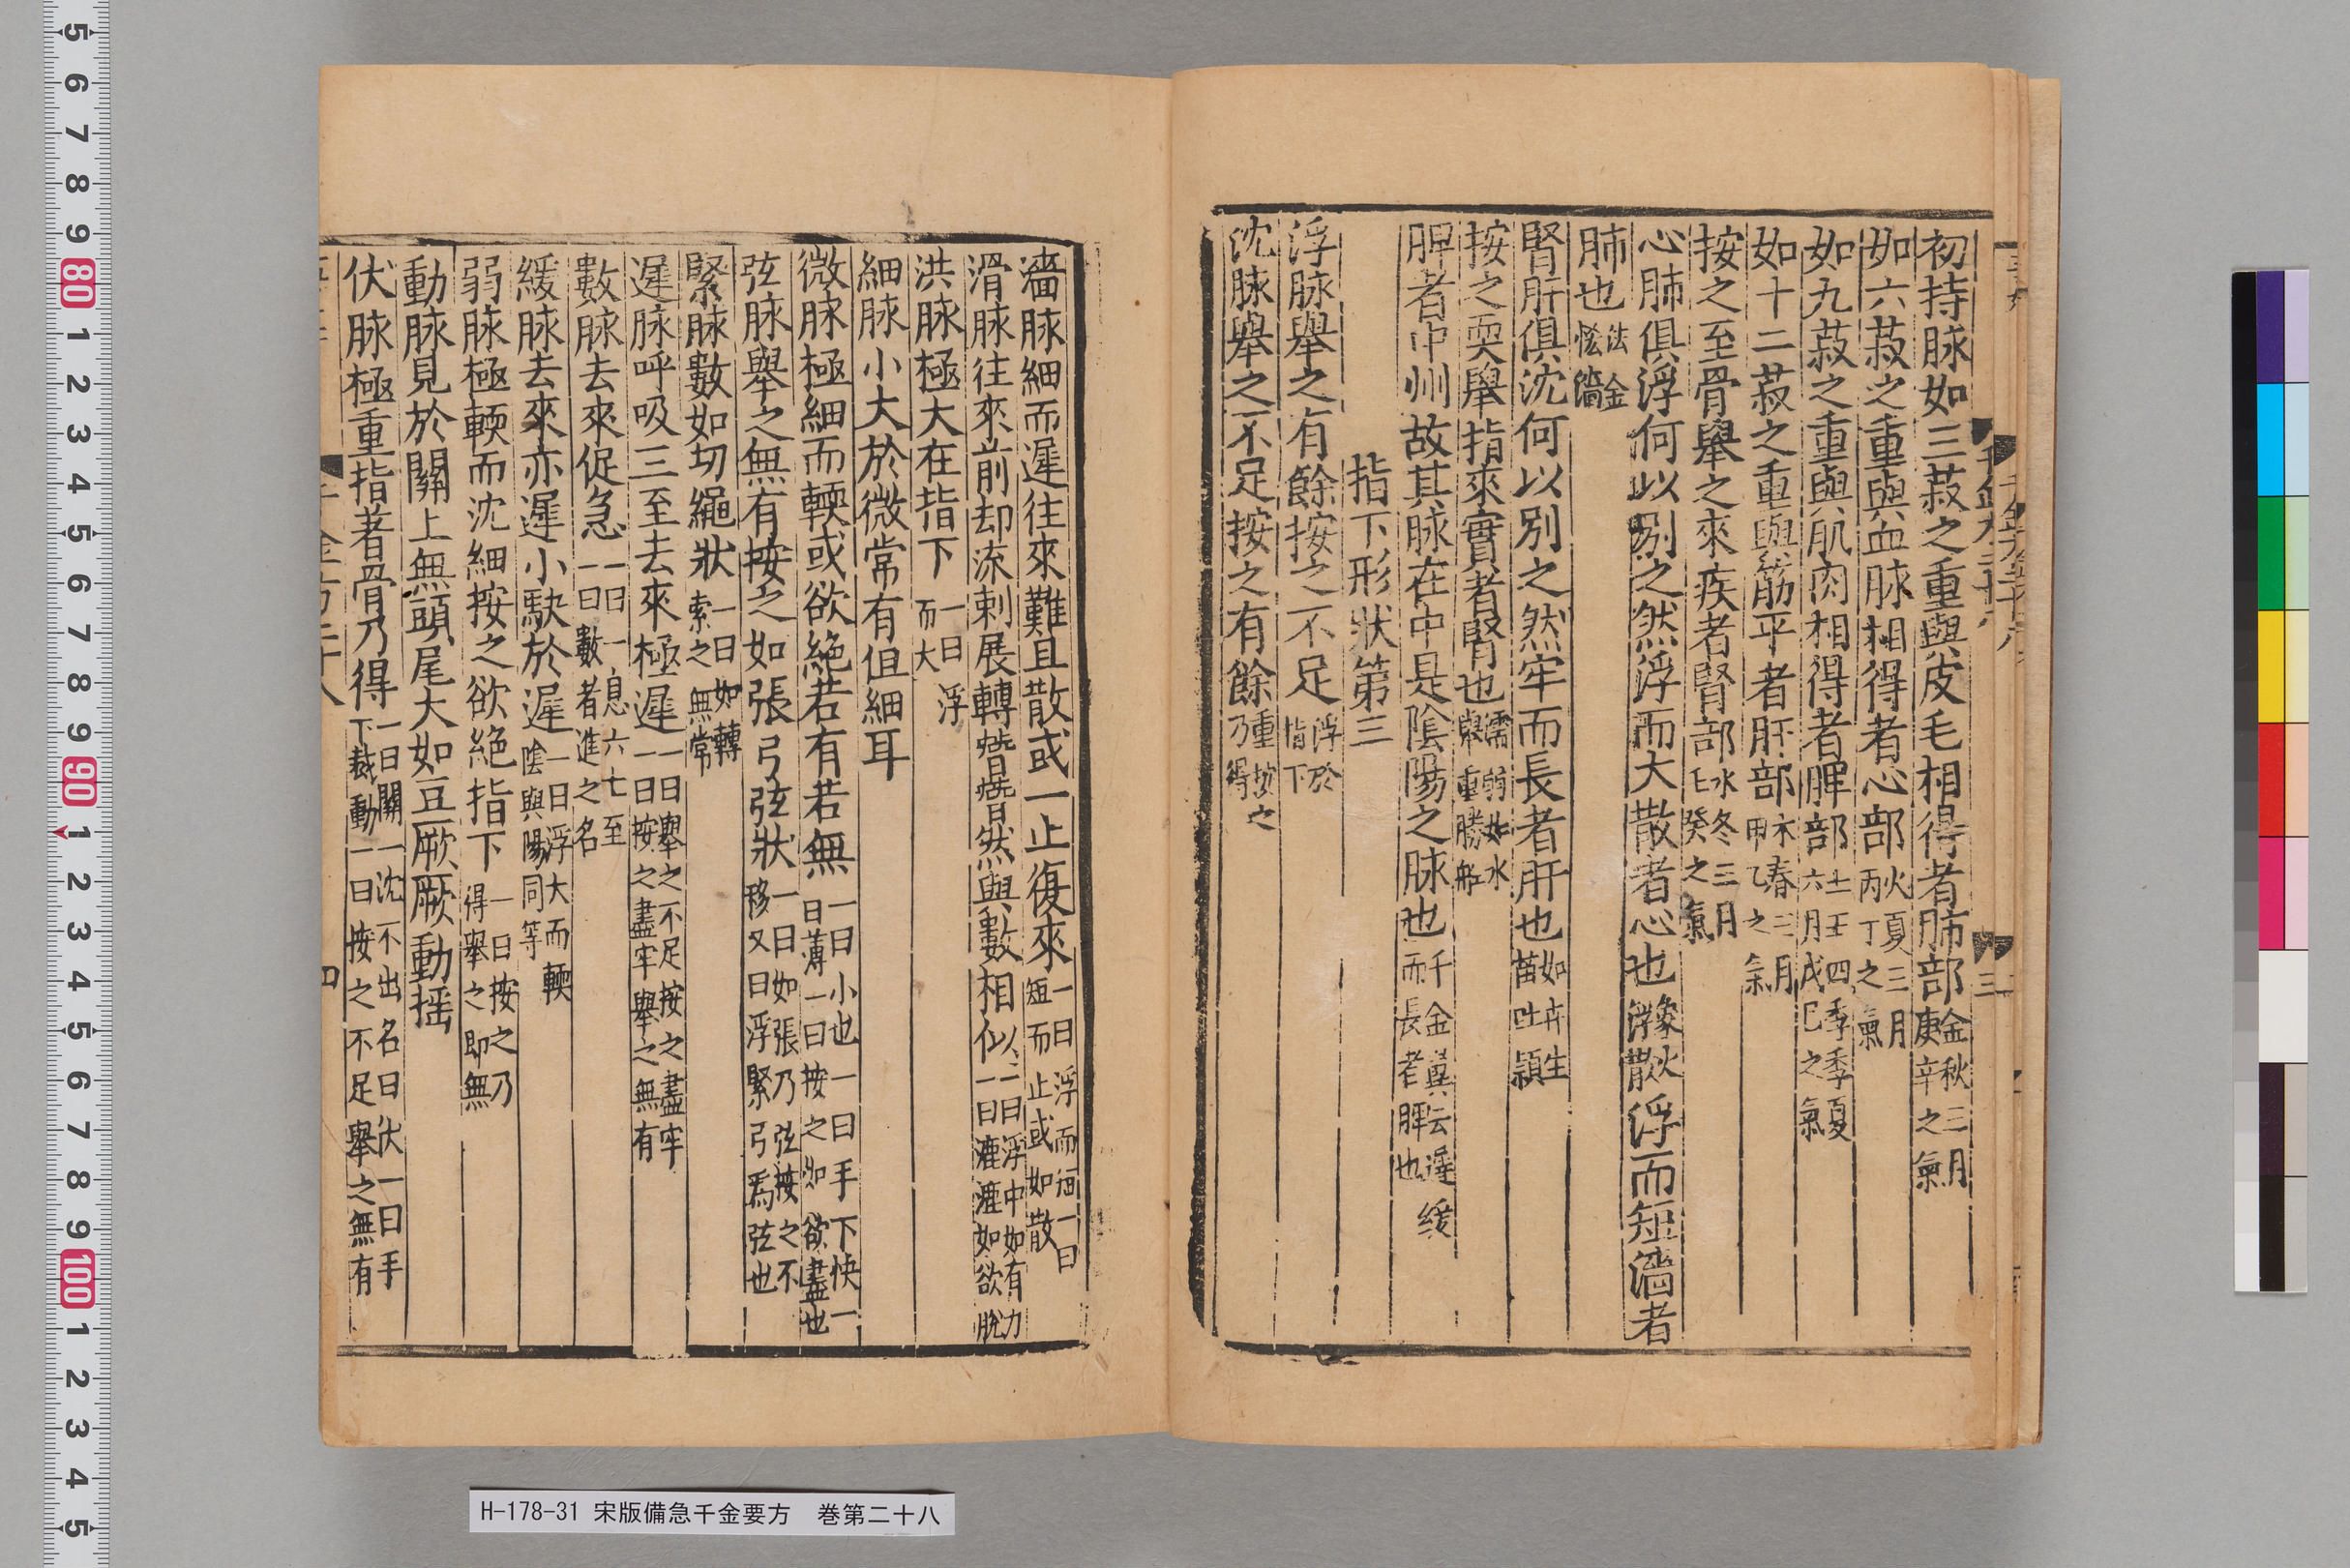 初持脉如三菽之重與皮毛相得者肺部金秋三月庚辛之氣
如六菽之重與血脉相得者心部火夏三月丙丁之氣
如九菽之重與肌肉相得者脾部土王四季季夏六月戊己之氣
如十二菽之重與筋平者肝部木春三月甲乙之氣
按之至骨舉之來疾者腎部水冬三月壬癸之氣
心肺俱浮何以別之然浮而大散者心也象火浮散浮而短濇者
肺也法金濇
腎肝俱沈何以別之然牢而長者肝也如卉生苗吐頴
按之耎舉指來實者腎也濡弱如水舉重勝船
脾者中州故其脉在中是陰陽之脉也千金翼云遲緩而長者脾也
指下形狀第三
浮脉舉之有餘按之不足浮於指下
沈脉舉之不足按之有餘重按之乃得
濇脉細而遲往來難且散或一止復來一曰浮而短一曰短而止或如散
滑脉往來前却流剌展轉替替然與數相似一曰浮中如有力一曰漉漉如欲脫
洪脉極大在指下一曰浮而大
細脉小大於微常有但細耳
微脉極細而輭或欲絶若有若無一曰小也一曰手下快一曰薄一曰按之如欲盡也
弦脉舉之無有按之如張弓弦狀一曰如張乃弦按之不移又曰浮緊弓爲弦也
緊脉數如切繩狀一曰如轉索之無常
遲脉呼吸三至去來極遲一曰舉之不足按之盡牢一曰按之盡牢舉之無有
數脉去來促急一曰一息六七至一曰數者進之名
緩脉去來亦遲小駃於遲一曰浮大而輭陰與陽同等
弱脉極輭而沈細按之欲絶指下一曰按之乃得舉之即無
動脉見於關上無頭尾大如豆厥厥動摇
伏脉極重指著骨乃得一曰關一沈不出名曰伏一曰手下裁動一曰按之不足舉之無有
千金方二十八
四
H-178-31 宋版備急千金要方 巻第二十八